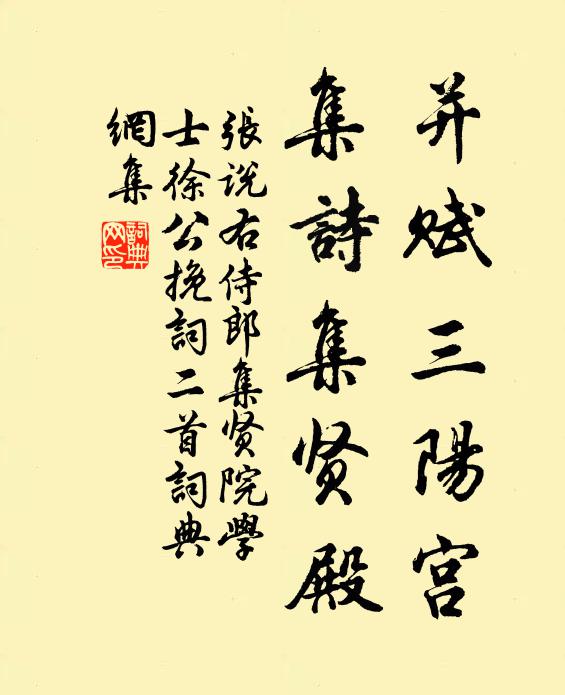 并赋三陽宫
集詩集贤殿
張説右侍郎集贤院學
士徐公挽詞二首詞典
網集
詞典
网印